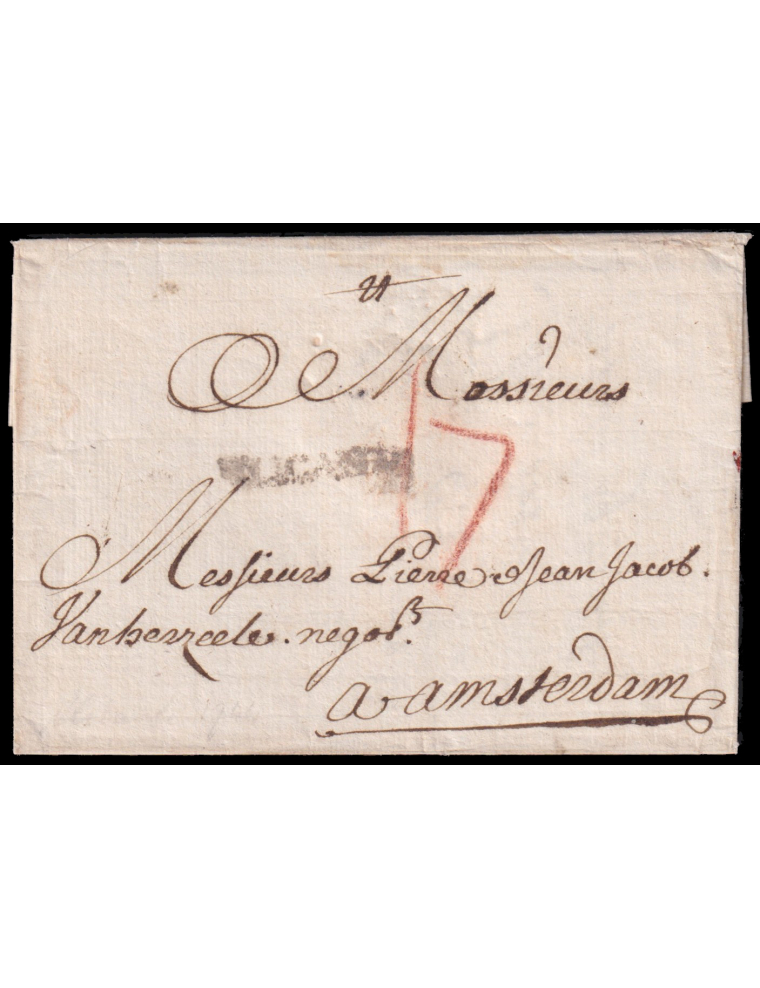 Messieurs
ALICANTE
17
Messieurs Pierre & Jean Jacob.
Vanherzeele. negots.
a amsterdam